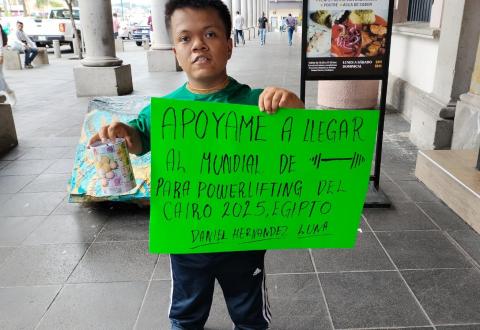 APOYAME A LLEGAR
AL MUNDIAL DE
PARA POWERLIFTING DEL
CAIRO 2025, EGIPTO
DANIEL HERNANDEZ LUNA
LUNES A SÁBADO
DOMINICAL